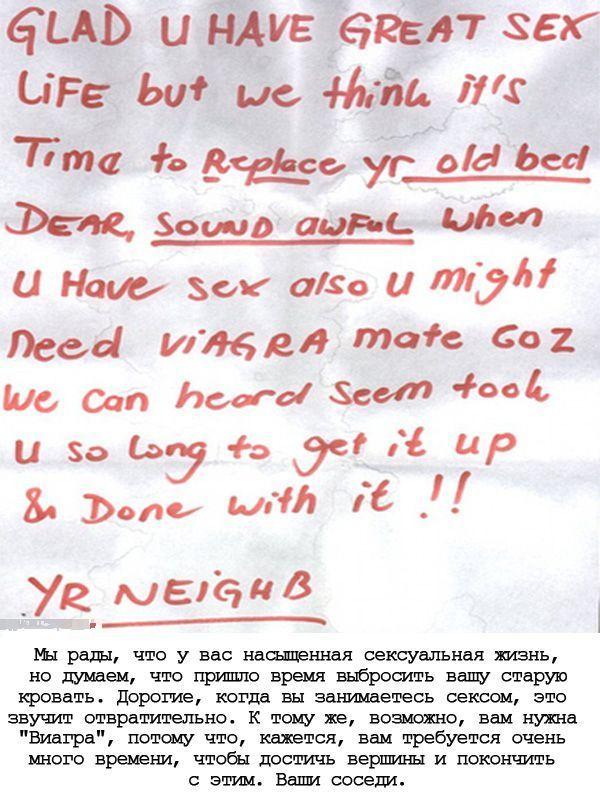 GLAD U HAVE GREAT SEX
LiFE but we think it's
Time to Replace yr old bed
DEAR, SOUND AWFUL when
U Have sex also u might
need VIAGRA mate COZ
We can heard Seem took
u so long to get it up
& Done with it !!
YR NEIGHB
Мы рады, что у вас насыщенная сексуальная жизнь,
но думаем, что пришло время выбросить вашу старую
кровать. Дорогие, когда вы занимаетесь сексом, это
звучит отвратительно. К тому же, возможно, вам нужна
"Виагра", потому что, кажется, вам требуется очень
много времени, чтобы достичь вершины и покончить
с этим. Ваши соседи.